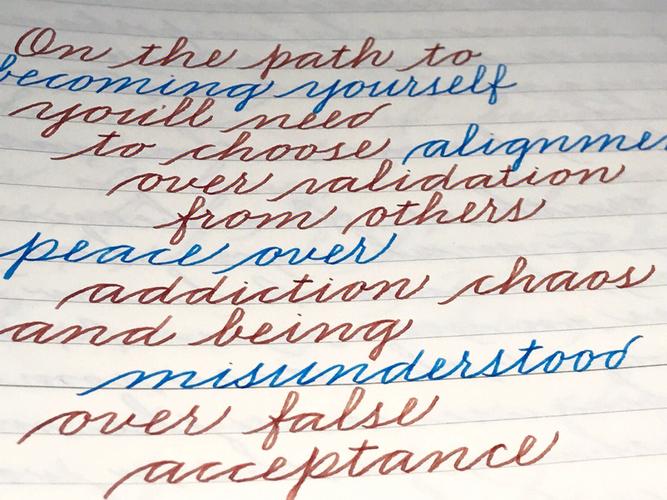 On the path to
becoming yourself
you'll need
to choose alignmen
over validation
from others
peace over
addiction chaos
and being
misunderstood
over false
acceptance